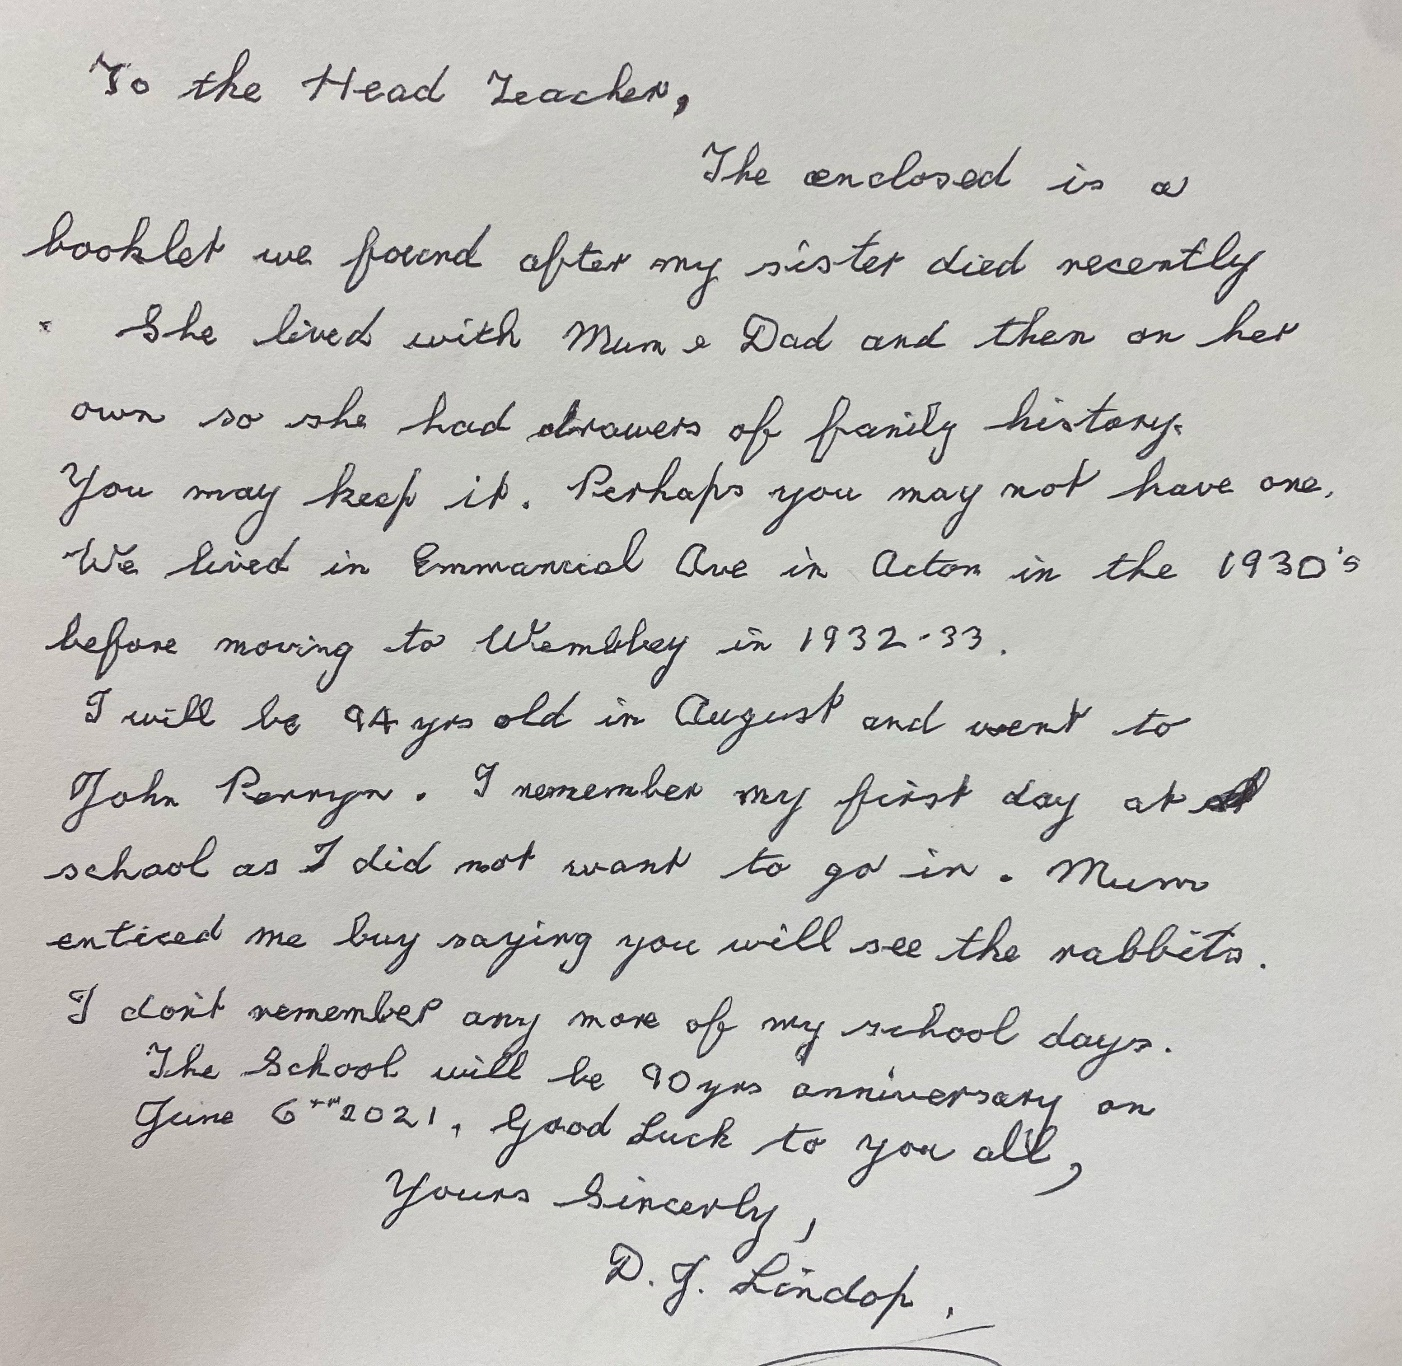 To the Head Teacher,
The enclosed is a
booklet we found after my sister died recently
. She lived with Mum & Dad and then on her
own so she had drawers of family history.
You may keep it. Perhaps you may not have one.
We lived in Emmanuel Ave in Acton in the 1930's
before moving to Wembley in 1932-33.
I will be 94 yrs old in August and went to
John Perryn. I remember my first day at
school as I did not want to go in. Mum
enticed me buy saying you will see the rabbits.
I don't remember any more of my school days.
The School will be 90 yrs anniversary on
June 6th 2021. Good Luck to you all,
Yours Sincerly,
D. J. Lindop.